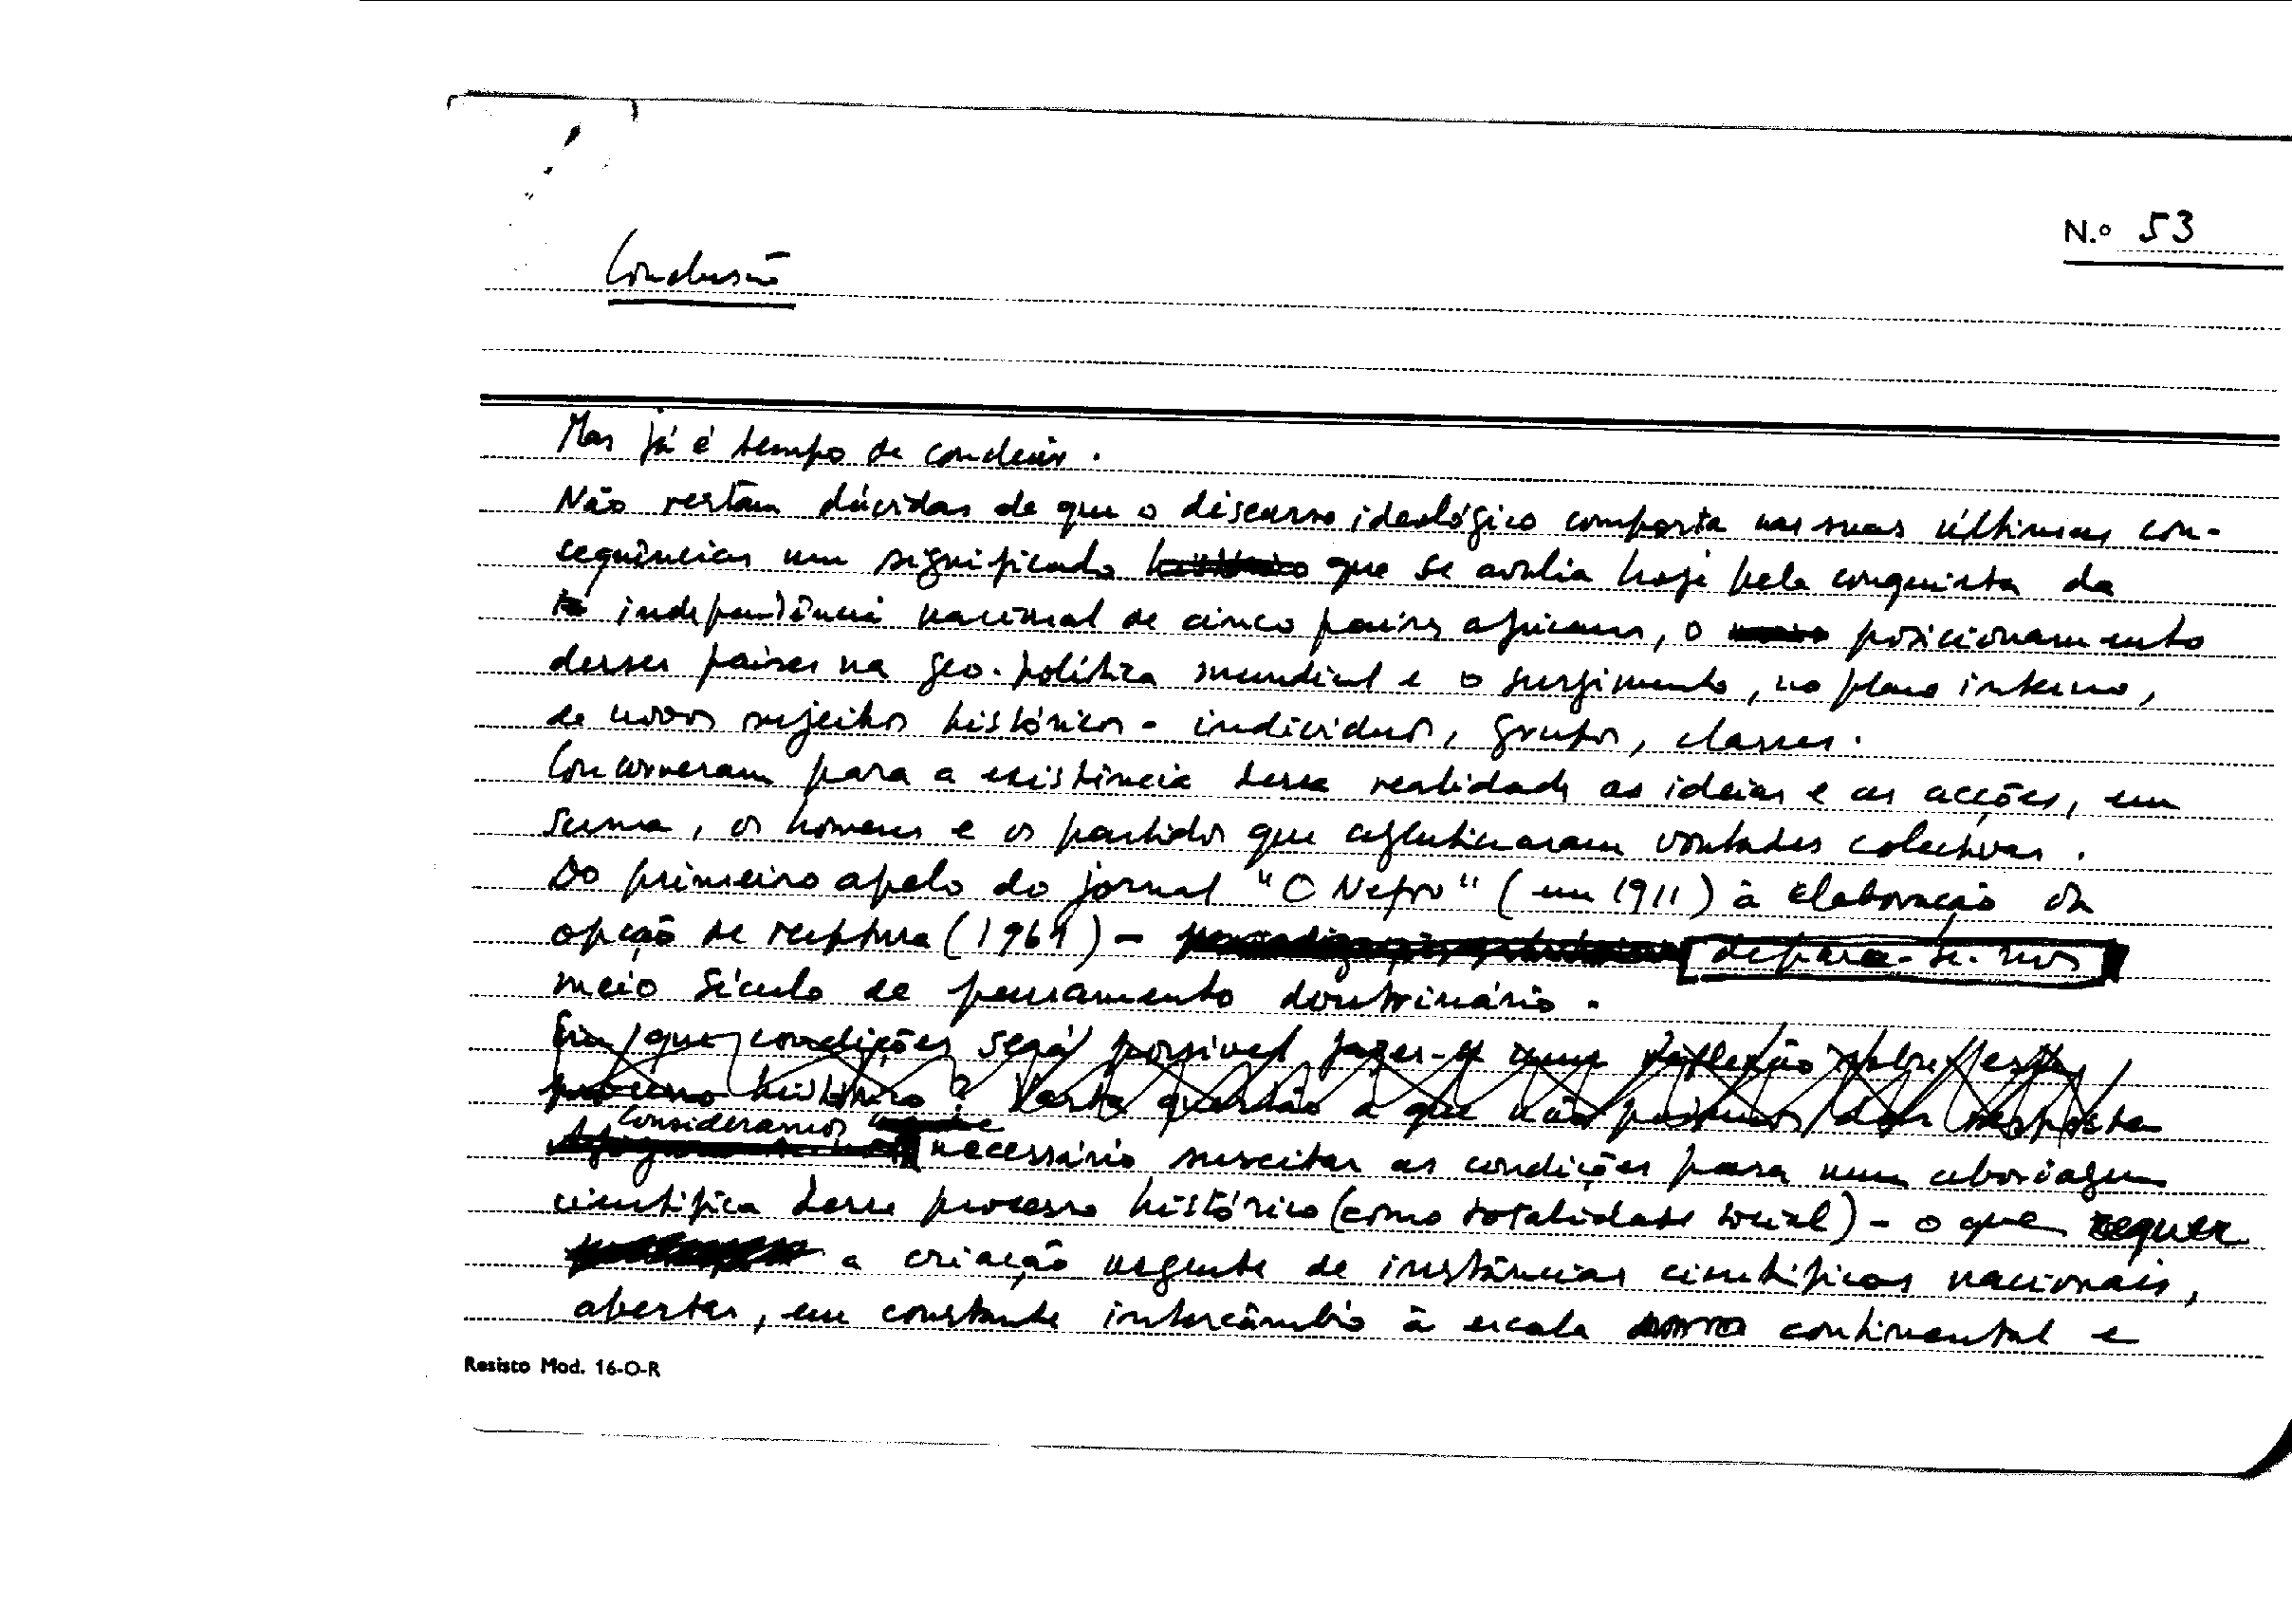 N.º 53
Conclusão
Mas já é tempo de concluir.
Não restam dúvidas de que o discurso ideológico comporta nas suas últimas con-
sequências um significado que se avalia hoje pela conquista da
independência nacional de cinco países africanos, o posicionamento
desses países na geo-política mundial e o surgimento, no plano interno,
de novos sujeitos históricos - indivíduos, grupos, classes.
Concorreram para a existência dessa realidade as ideias e as acções, em
suma, os homens e os partidos que aglutinaram vontades colectivas.
Do primeiro apelo do jornal "O Negro" (em 1911) à elaboração da
opção de ruptura (1961) - depara-se-nos
meio século de pensamento doutrinário.
Em que condições será possível fazer-se uma reflexão sobre este
processo histórico? Vasta questão a que não podemos dar resposta
Consideramos
necessário suscitar as condições para uma abordagem
científica desse processo histórico (como totalidade social) - o que requer
a criação urgente de instâncias científicas nacionais,
abertas, em constante intercâmbio à escala continental e
Resisto Mod. 16-O-R